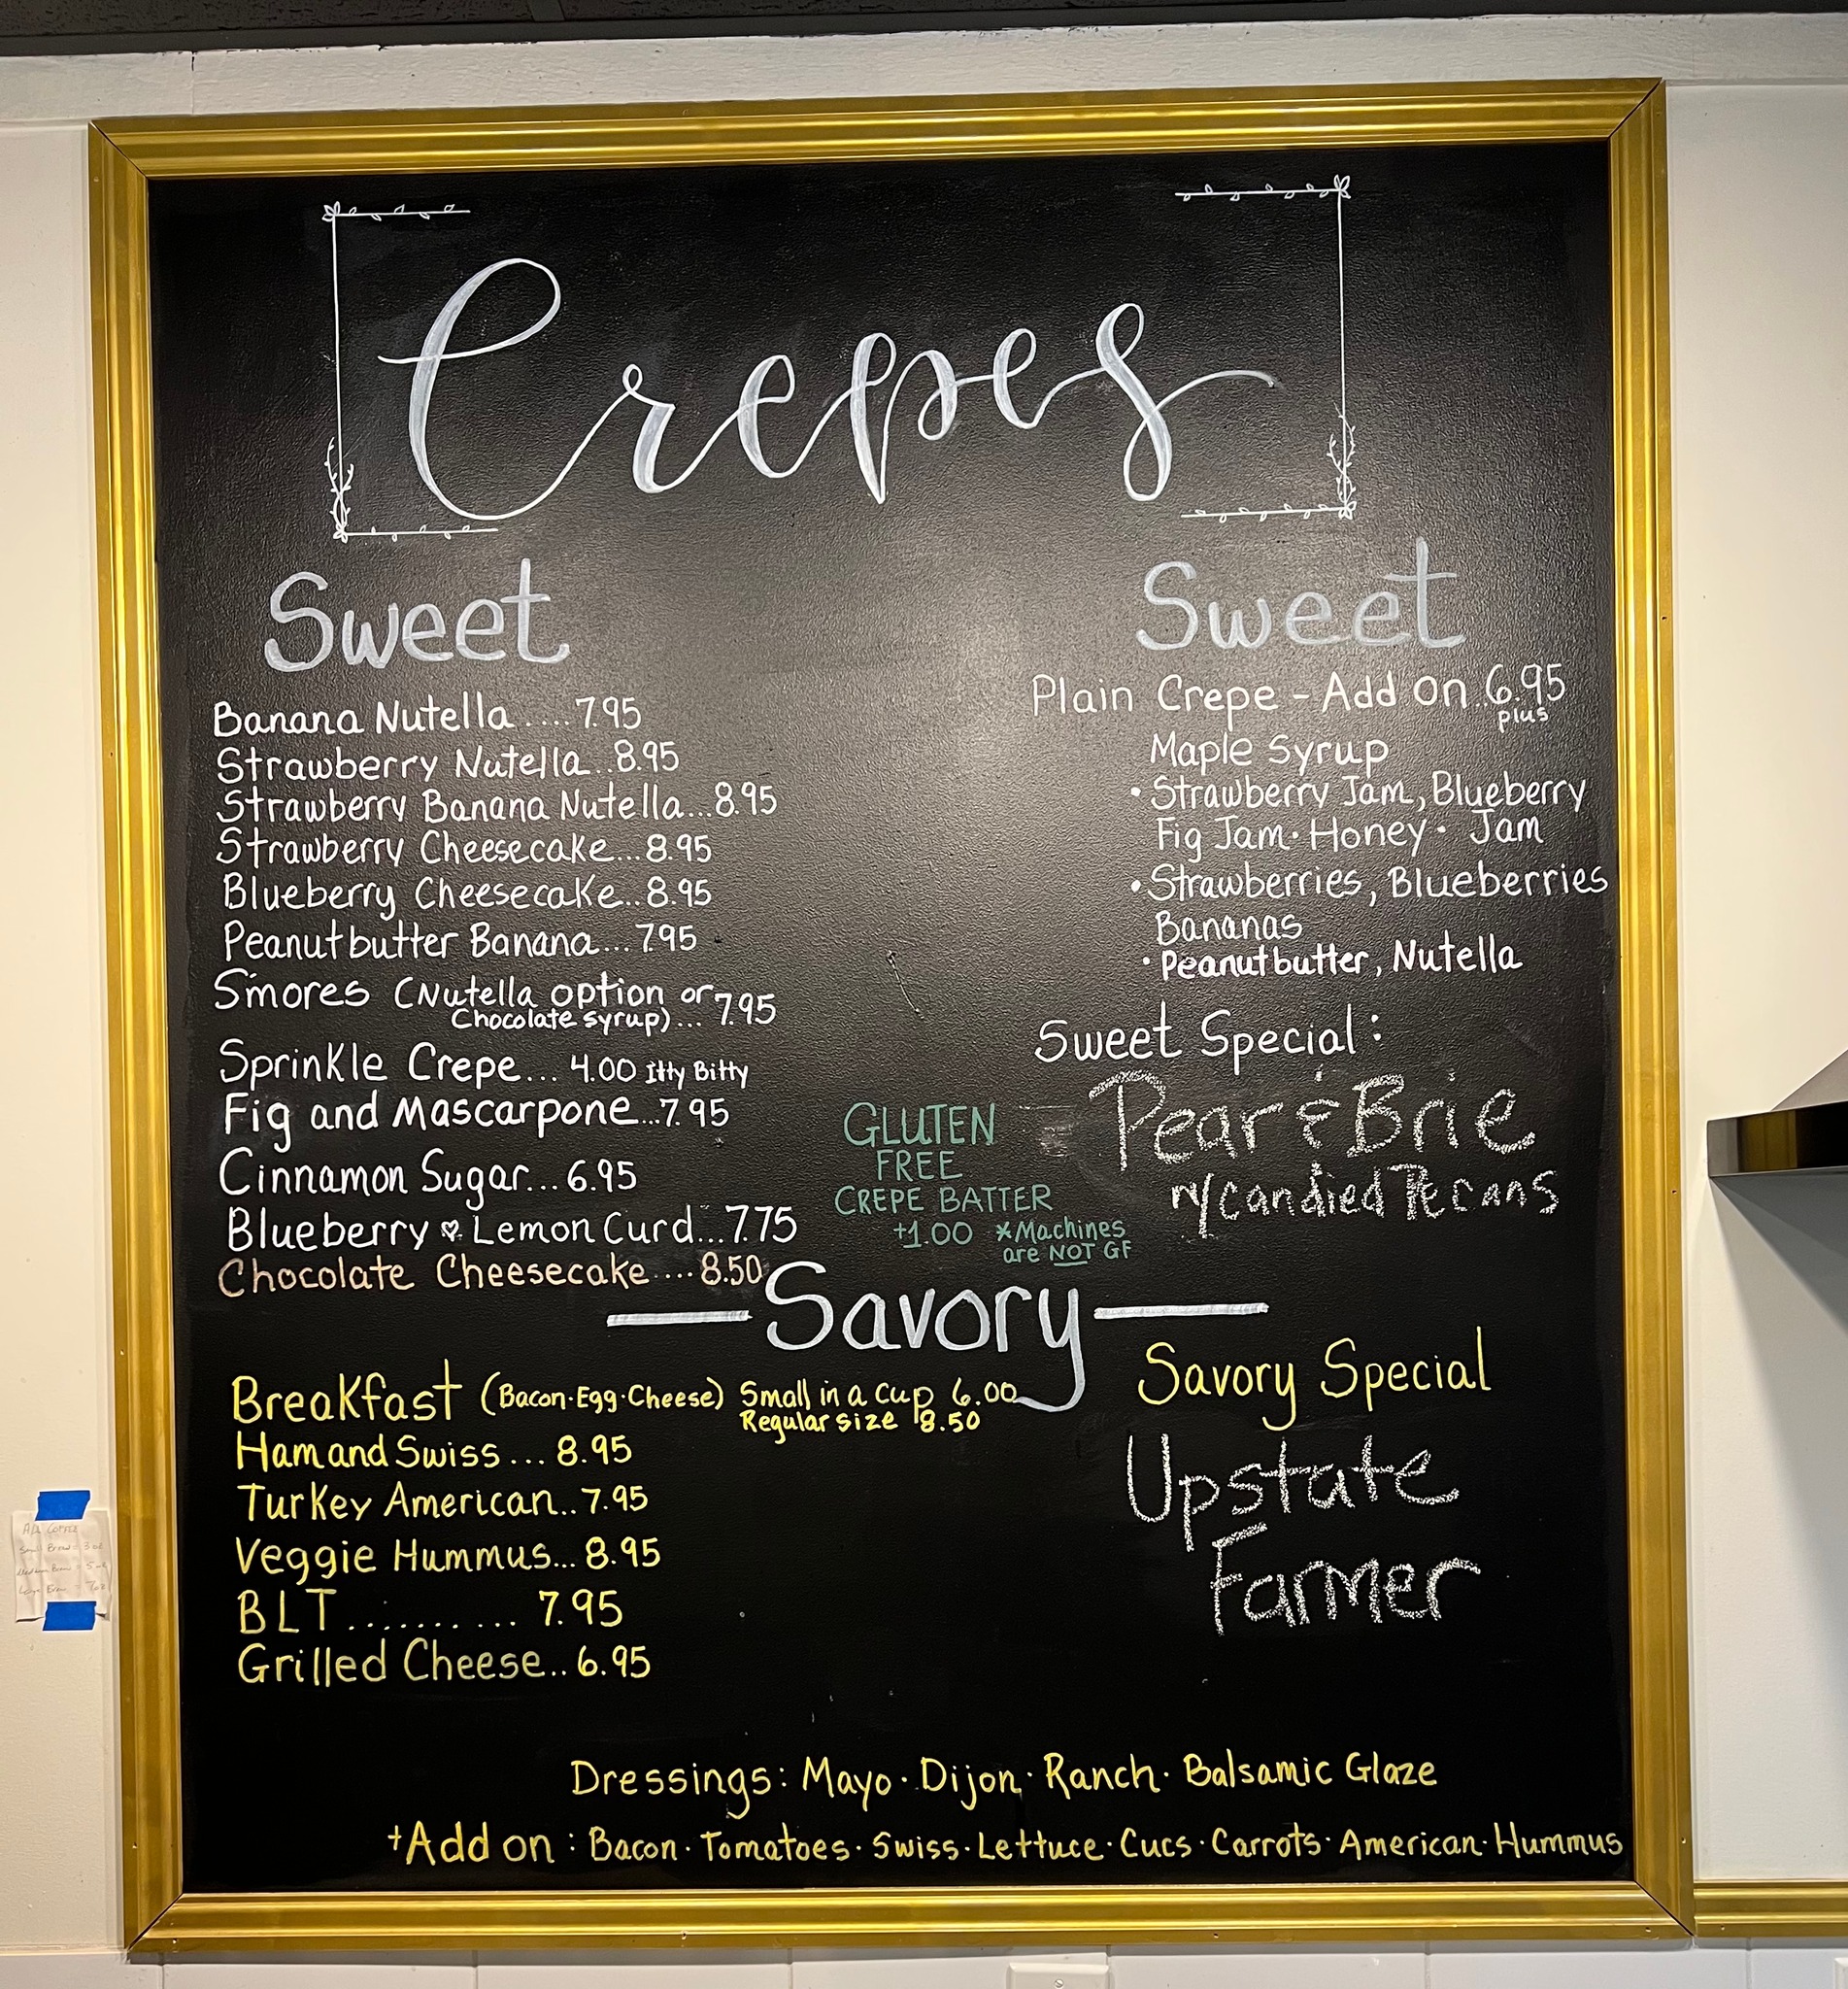 Crepes
Sweet
Banana Nutella....7.95
Strawberry Nutella..8.95
Strawberry Banana Nutella...8.95
Strawberry Cheesecake...8.95
Blueberry Cheesecake..8.95
Peanutbutter Banana...7.95
S'mores (Nutella option or
Chocolate syrup)... 7.95
Sprinkle Crepe... 4.00 Itty Bitty
Fig and Mascarpone...7.95
Cinnamon Sugar...6.95
Blueberry Lemon Curd...7.75
Chocolate Cheesecake....8.50
Sweet
Plain Crepe - Add on..6.95
plus
Maple Syrup
• Strawberry Jam, Blueberry
Fig Jam · Honey · Jam
• Strawberries, Blueberries
Bananas
• Peanutbutter, Nutella
Sweet Special:
Pear & Brie
w/candied Pecans
GLUTEN
FREE
CREPE BATTER
+1.00 *Machines
are NOT GF
Savory
Breakfast (Bacon·Egg·Cheese) Small in a cup 6.00
Regular size 8.50
Ham and Swiss... 8.95
Turkey American..7.95
Veggie Hummus...8.95
BLT.......... 7.95
Grilled Cheese..6.95
Savory Special
Upstate
Farmer
Dressings: Mayo · Dijon · Ranch · Balsamic Glaze
+Add on: Bacon · Tomatoes · Swiss · Lettuce · Cucs · Carrots · American · Hummus